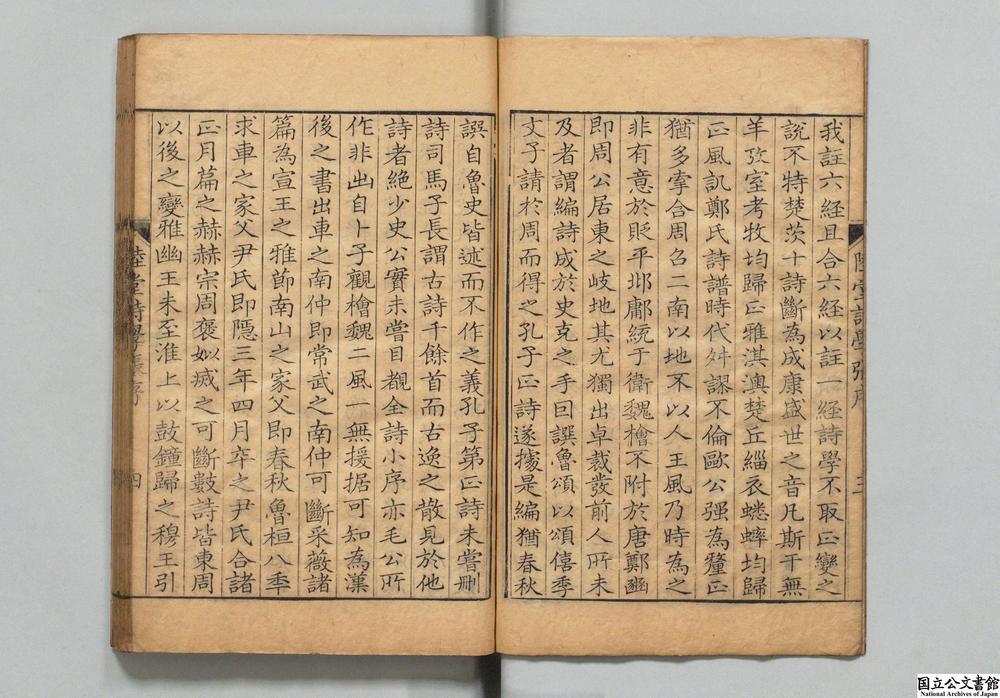 我註六経且合六経以註一経詩學不取正變之
說不特楚茨十詩斷為成康盛世之音凡斯干無
羊攷室考牧均歸正雅淇澳楚丘緇衣蟋蟀均歸
正風訊鄭氏詩譜時代舛謬不倫歐公强為釐正
猶多牽合周召二南以地不以人王風乃時為之
非有意於貶平邶鄘統于衛魏檜不附於唐鄭豳
即周公居東之岐地其尤獨出卓裁發前人所未
及者謂編詩成於史克之手曰譔魯頌以頌僖季
文子請於周而得之孔子正詩遂據是編猶春秋
陸堂詩學張序
三
譔自魯史皆述而不作之義孔子第正詩未嘗刪
詩司馬子長謂古詩千餘首而古逸之散見於他
詩者絶少史公實未嘗目覩全詩小序亦毛公所
作非出自卜子觀檜魏二風一無援据可知為漢
後之書出車之南仲即常武之南仲可斷采薇諸
篇為宣王之雅節南山之家父即春秋魯桓八年
求車之家父尹氏即隱三年四月卒之尹氏合諸
正月篇之赫赫宗周褒姒烕之可斷數詩皆東周
以後之變雅幽王未至淮上以鼓鐘歸之穆王引
陸堂詩學張序
四
国立公文書館
National Archives of Japan